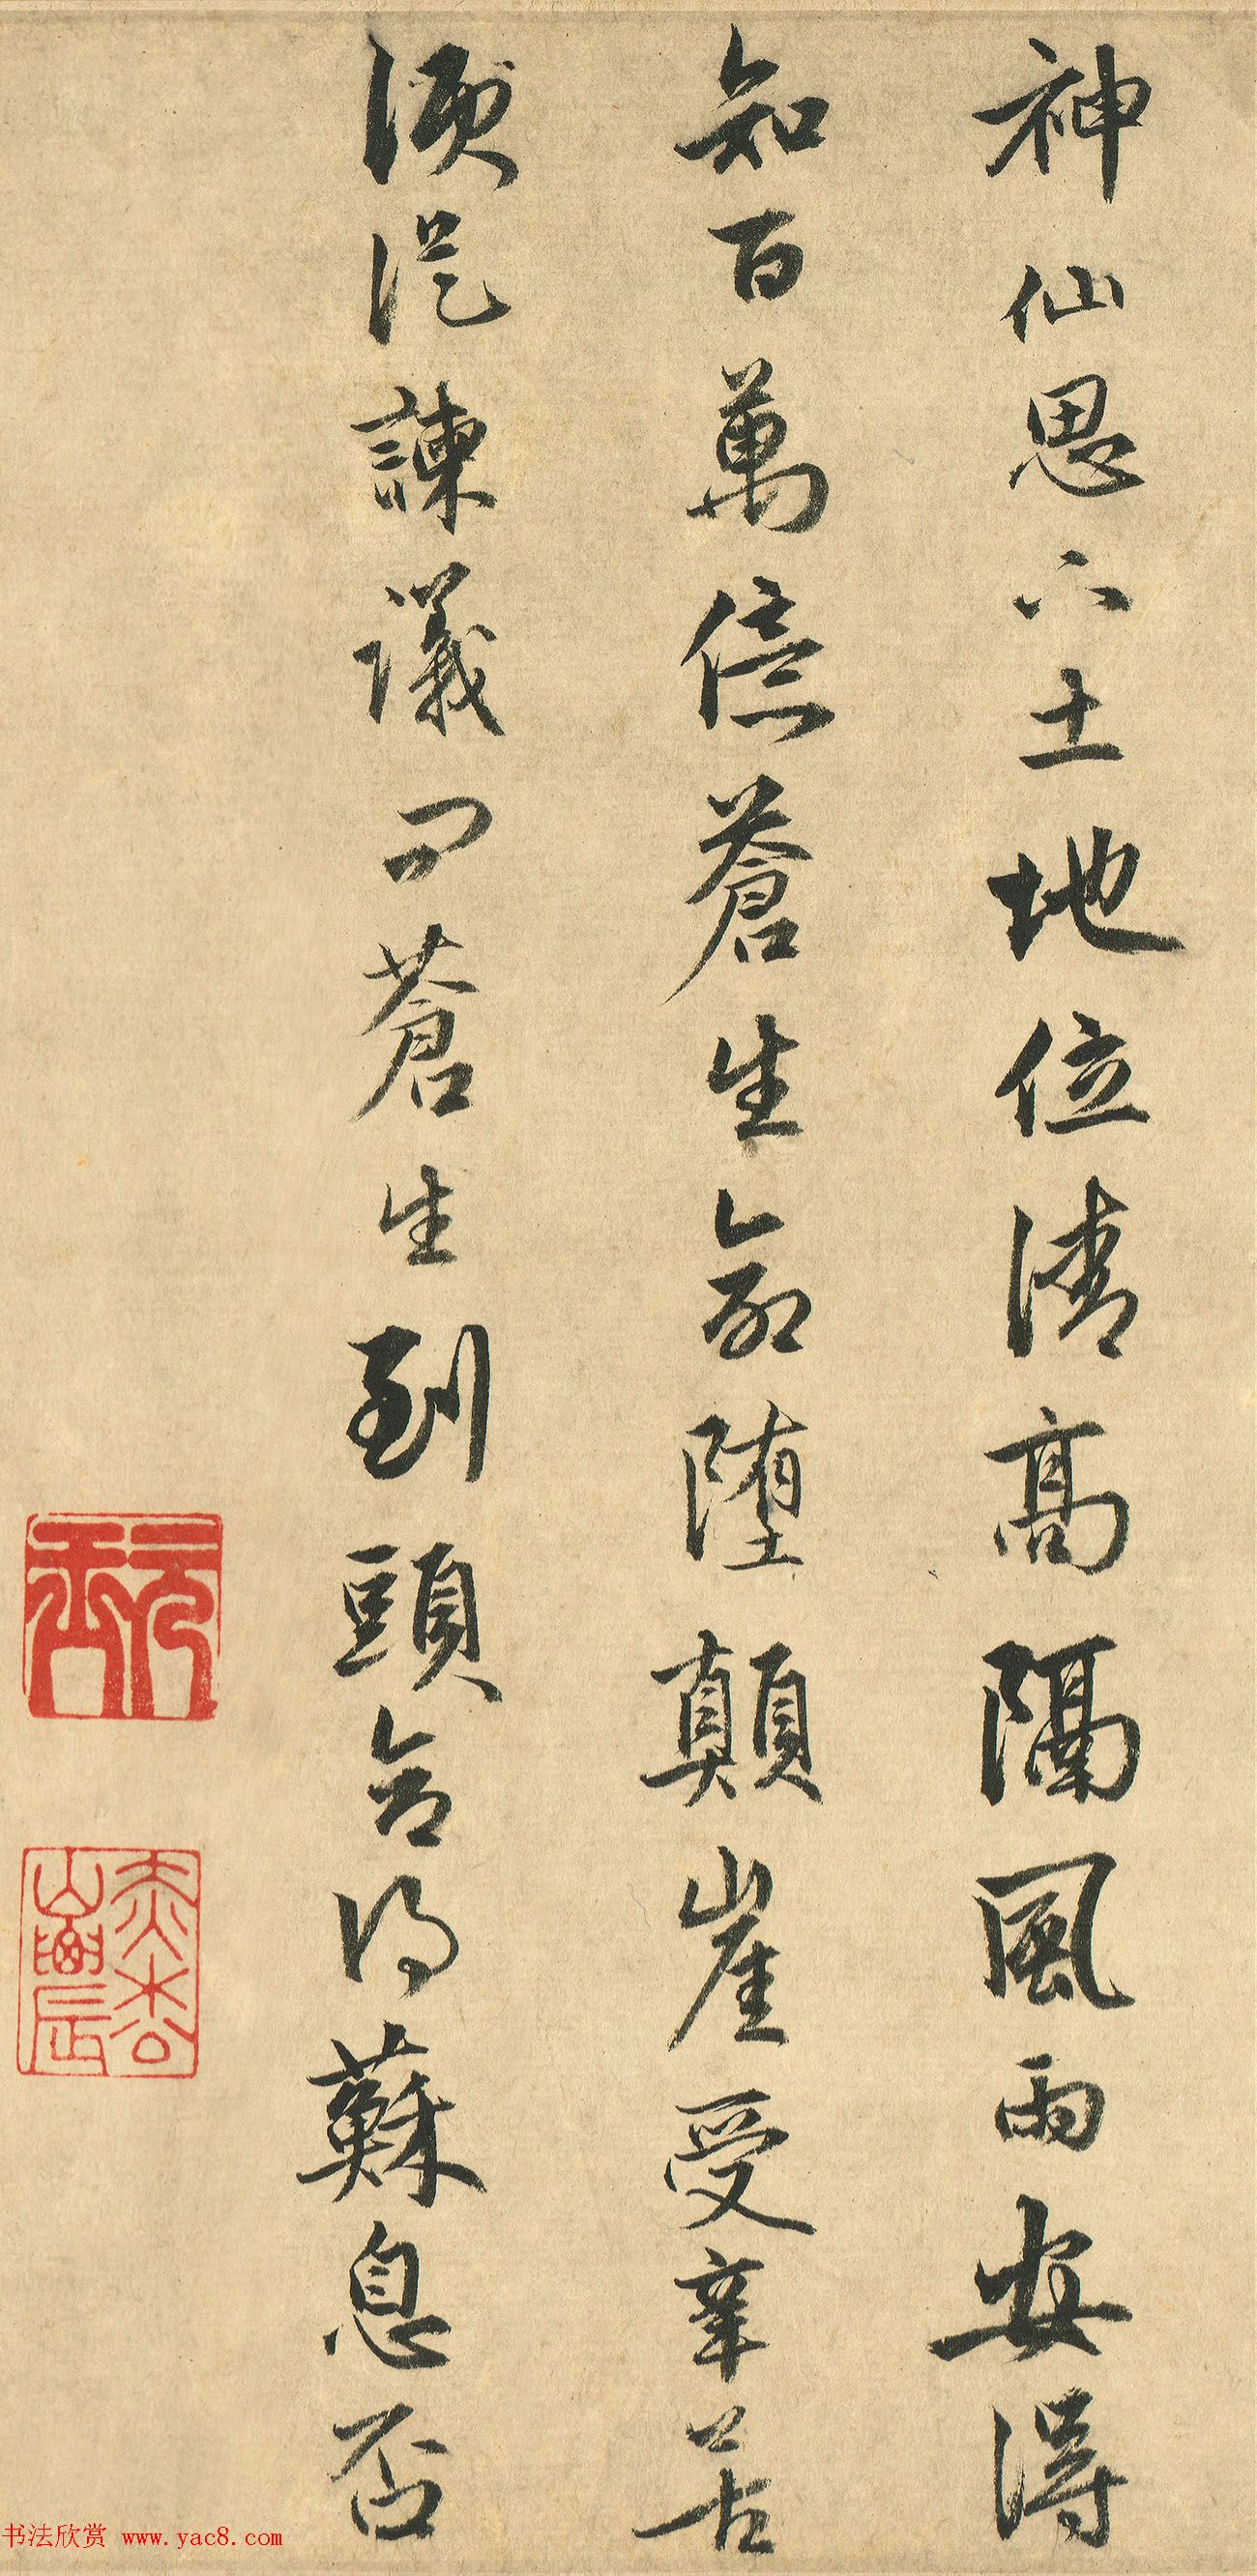 神仙思下土地位清高隔風雨安得
知百萬億蒼生命堕顛崖受辛苦
須從諫議問蒼生到頭合得蘇息否
书法欣赏 www.yac8.com